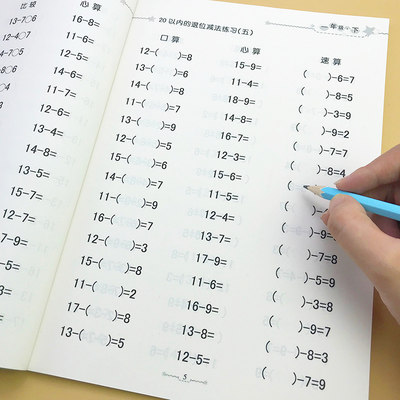 比较
13-7○6
12-4○7
心算
16-8=
11-6=
14-6=
11-5=
12-6=
13-4=
14-8=
13-5=
15-7=
17-9=
12-5=
11-8=
13-9=
20 以内的退位减法练习(五)
口算
12-( )=8
13-( )=6
11-( )=7
13-( )=9
12-( )=5
15-( )=6
14-( )=7
11-( )=9
16-( )=7
12-( )=3
15-( )=8
11-( )=2
17-( )=8
13-( )=5
心算
15-9=
11-4=
18-9=
14-9=
16-7=
12-3=
15-6=
11-5=
12-4=
13-7=
17-9=
11-6=
13-8=
12-5=
速算
( )-6=7
( )-7=5
( )-3=9
( )-9=2
( )-7=7
( )-8=4
( )-3=8
( )-9=7
( )-8=3
( )-7=9
5